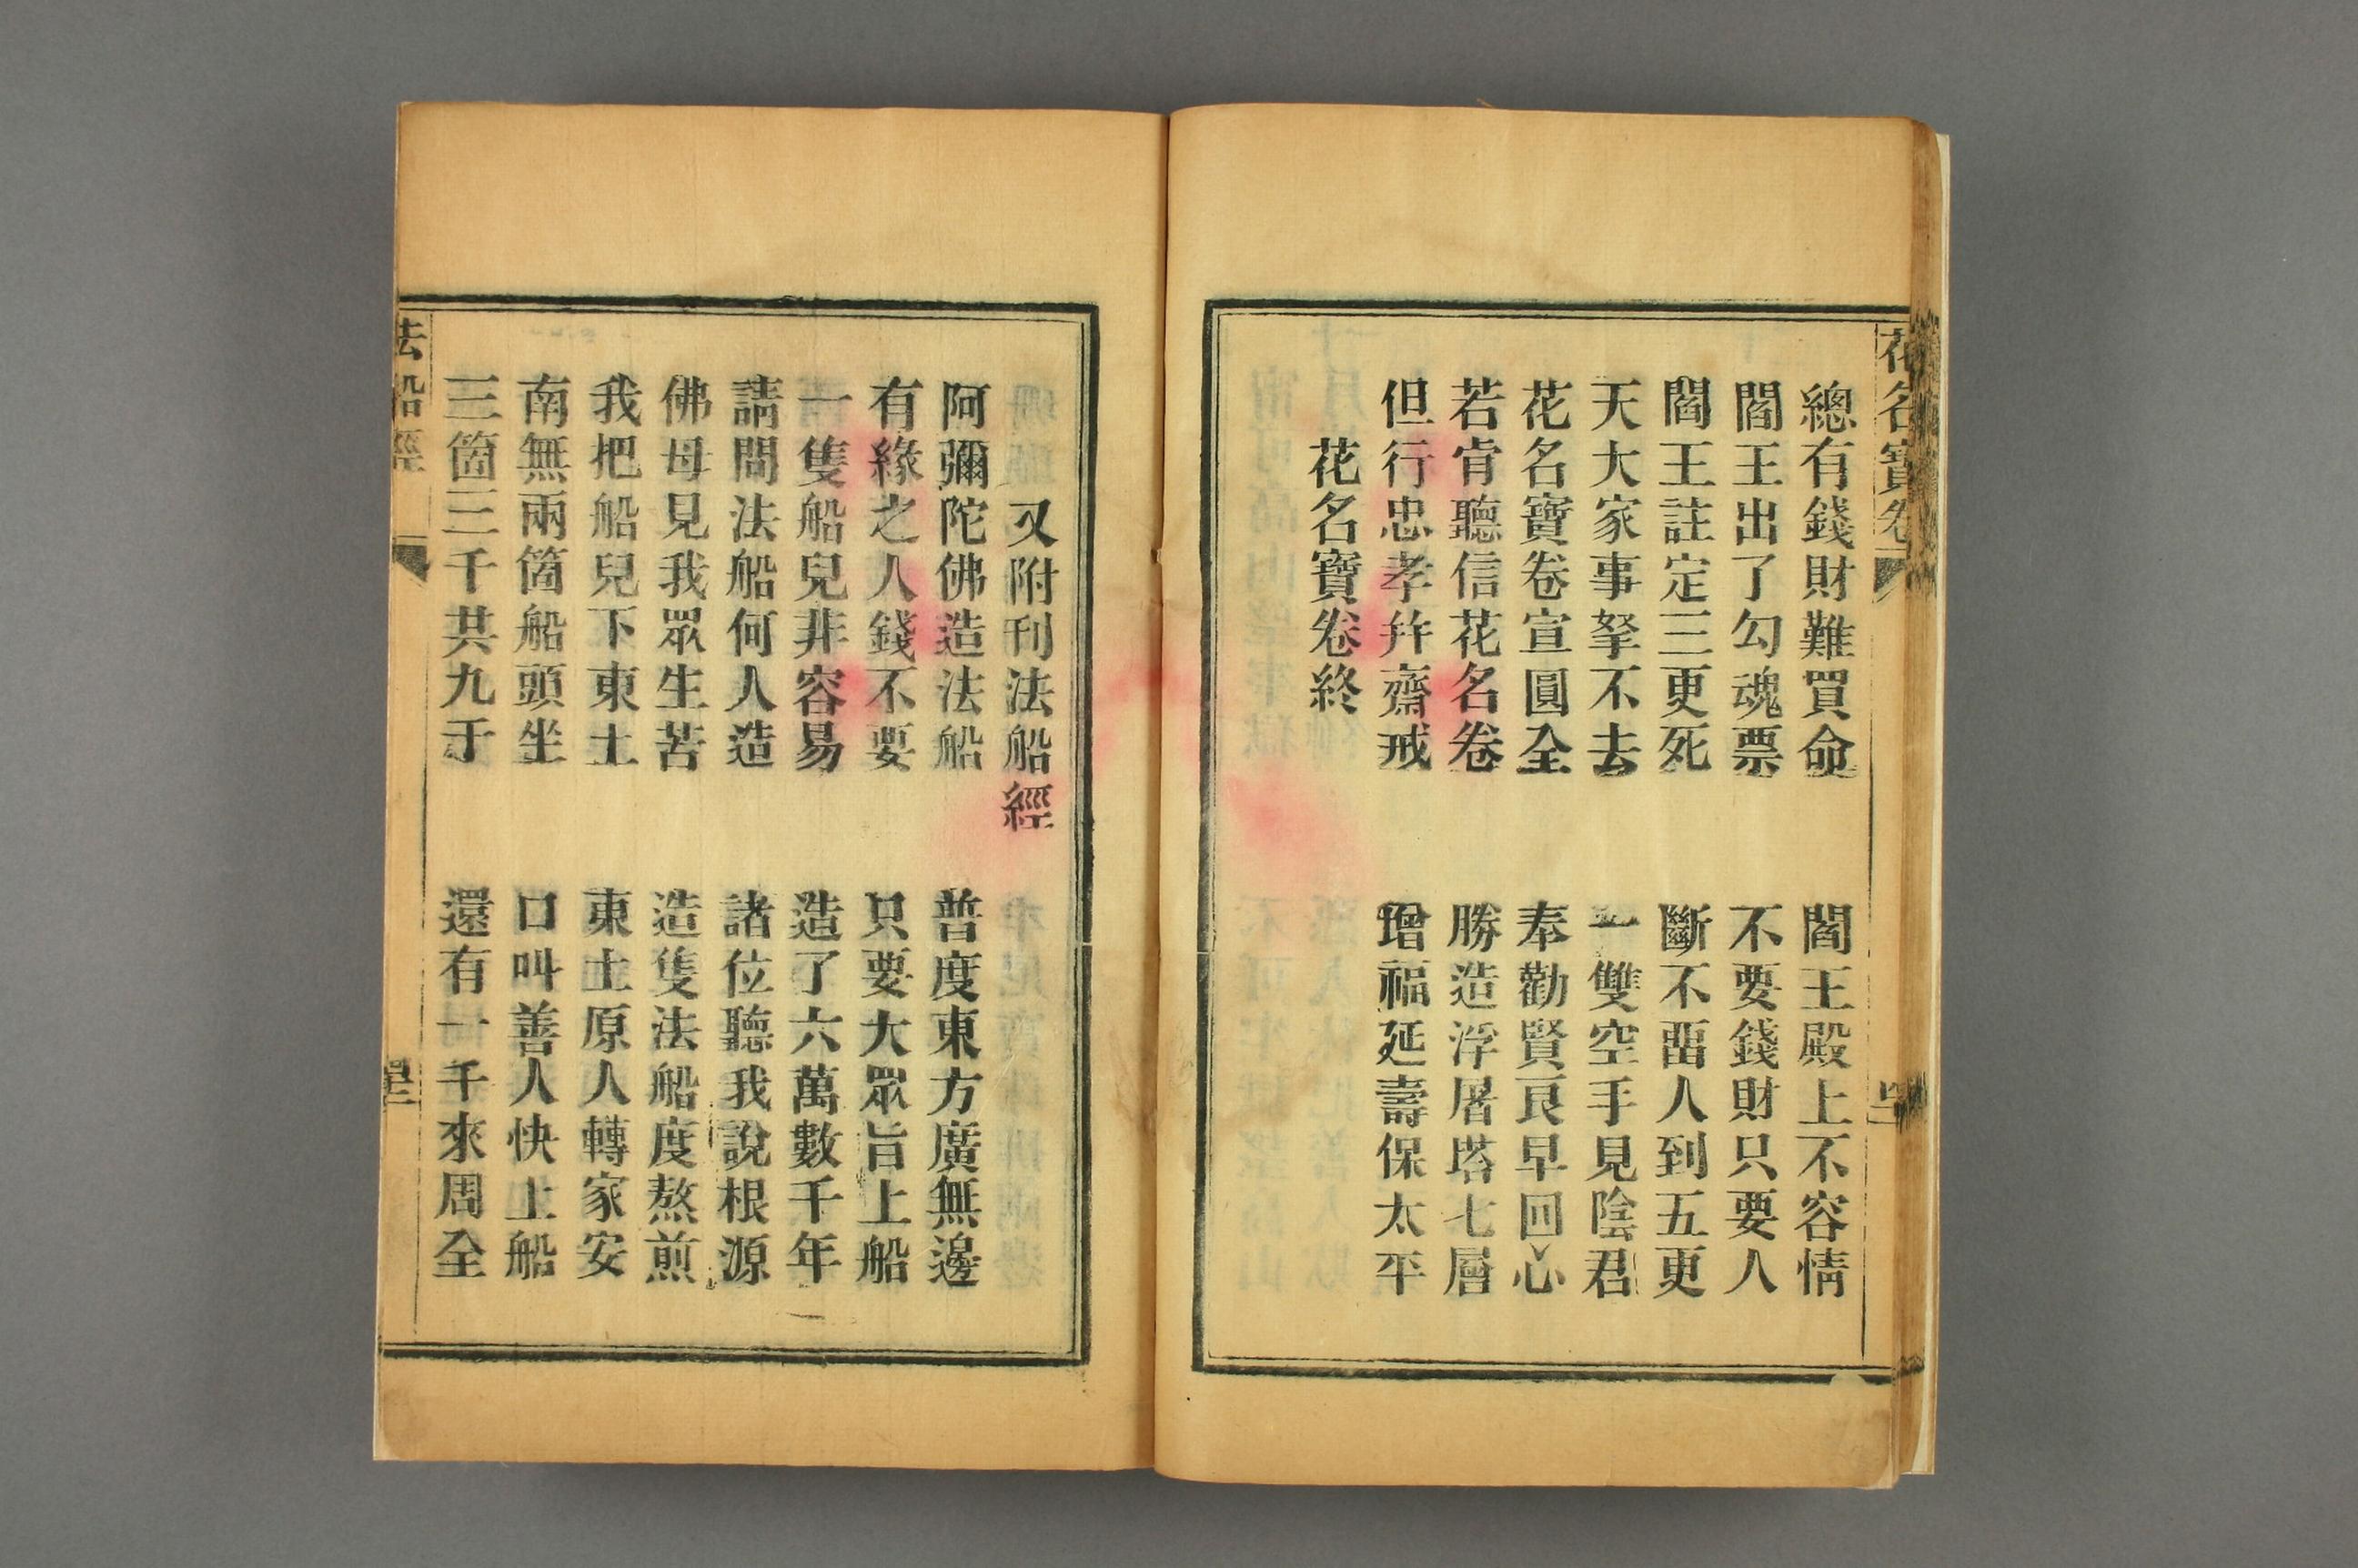 花名寶卷
總有錢財難買命　閻王殿上不容情
閻王出了勾魂票　不要錢財只要人
閻王註定三更死　斷不畱人到五更
天大家事拏不去　一雙空手見陰君
花名寶卷宣圓全　奉勸賢良早回心
若肯聽信花名卷　勝造浮屠塔七層
但行忠孝幷齋戒　增福延壽保太平
花名寶卷終
又附刊法船經
阿彌陀佛造法船　普度東方廣無邊
有緣之人錢不要　只要大眾旨上船
一隻船兒非容易　造了六萬數千年
請問法船何人造　諸位聽我說根源
佛母見我眾生苦　造隻法船度熬煎
我把船兒下東土　東土原人轉家安
南無兩箇船頭坐　口叫善人快上船
三箇三千共九千　還有一千來周全
法船經